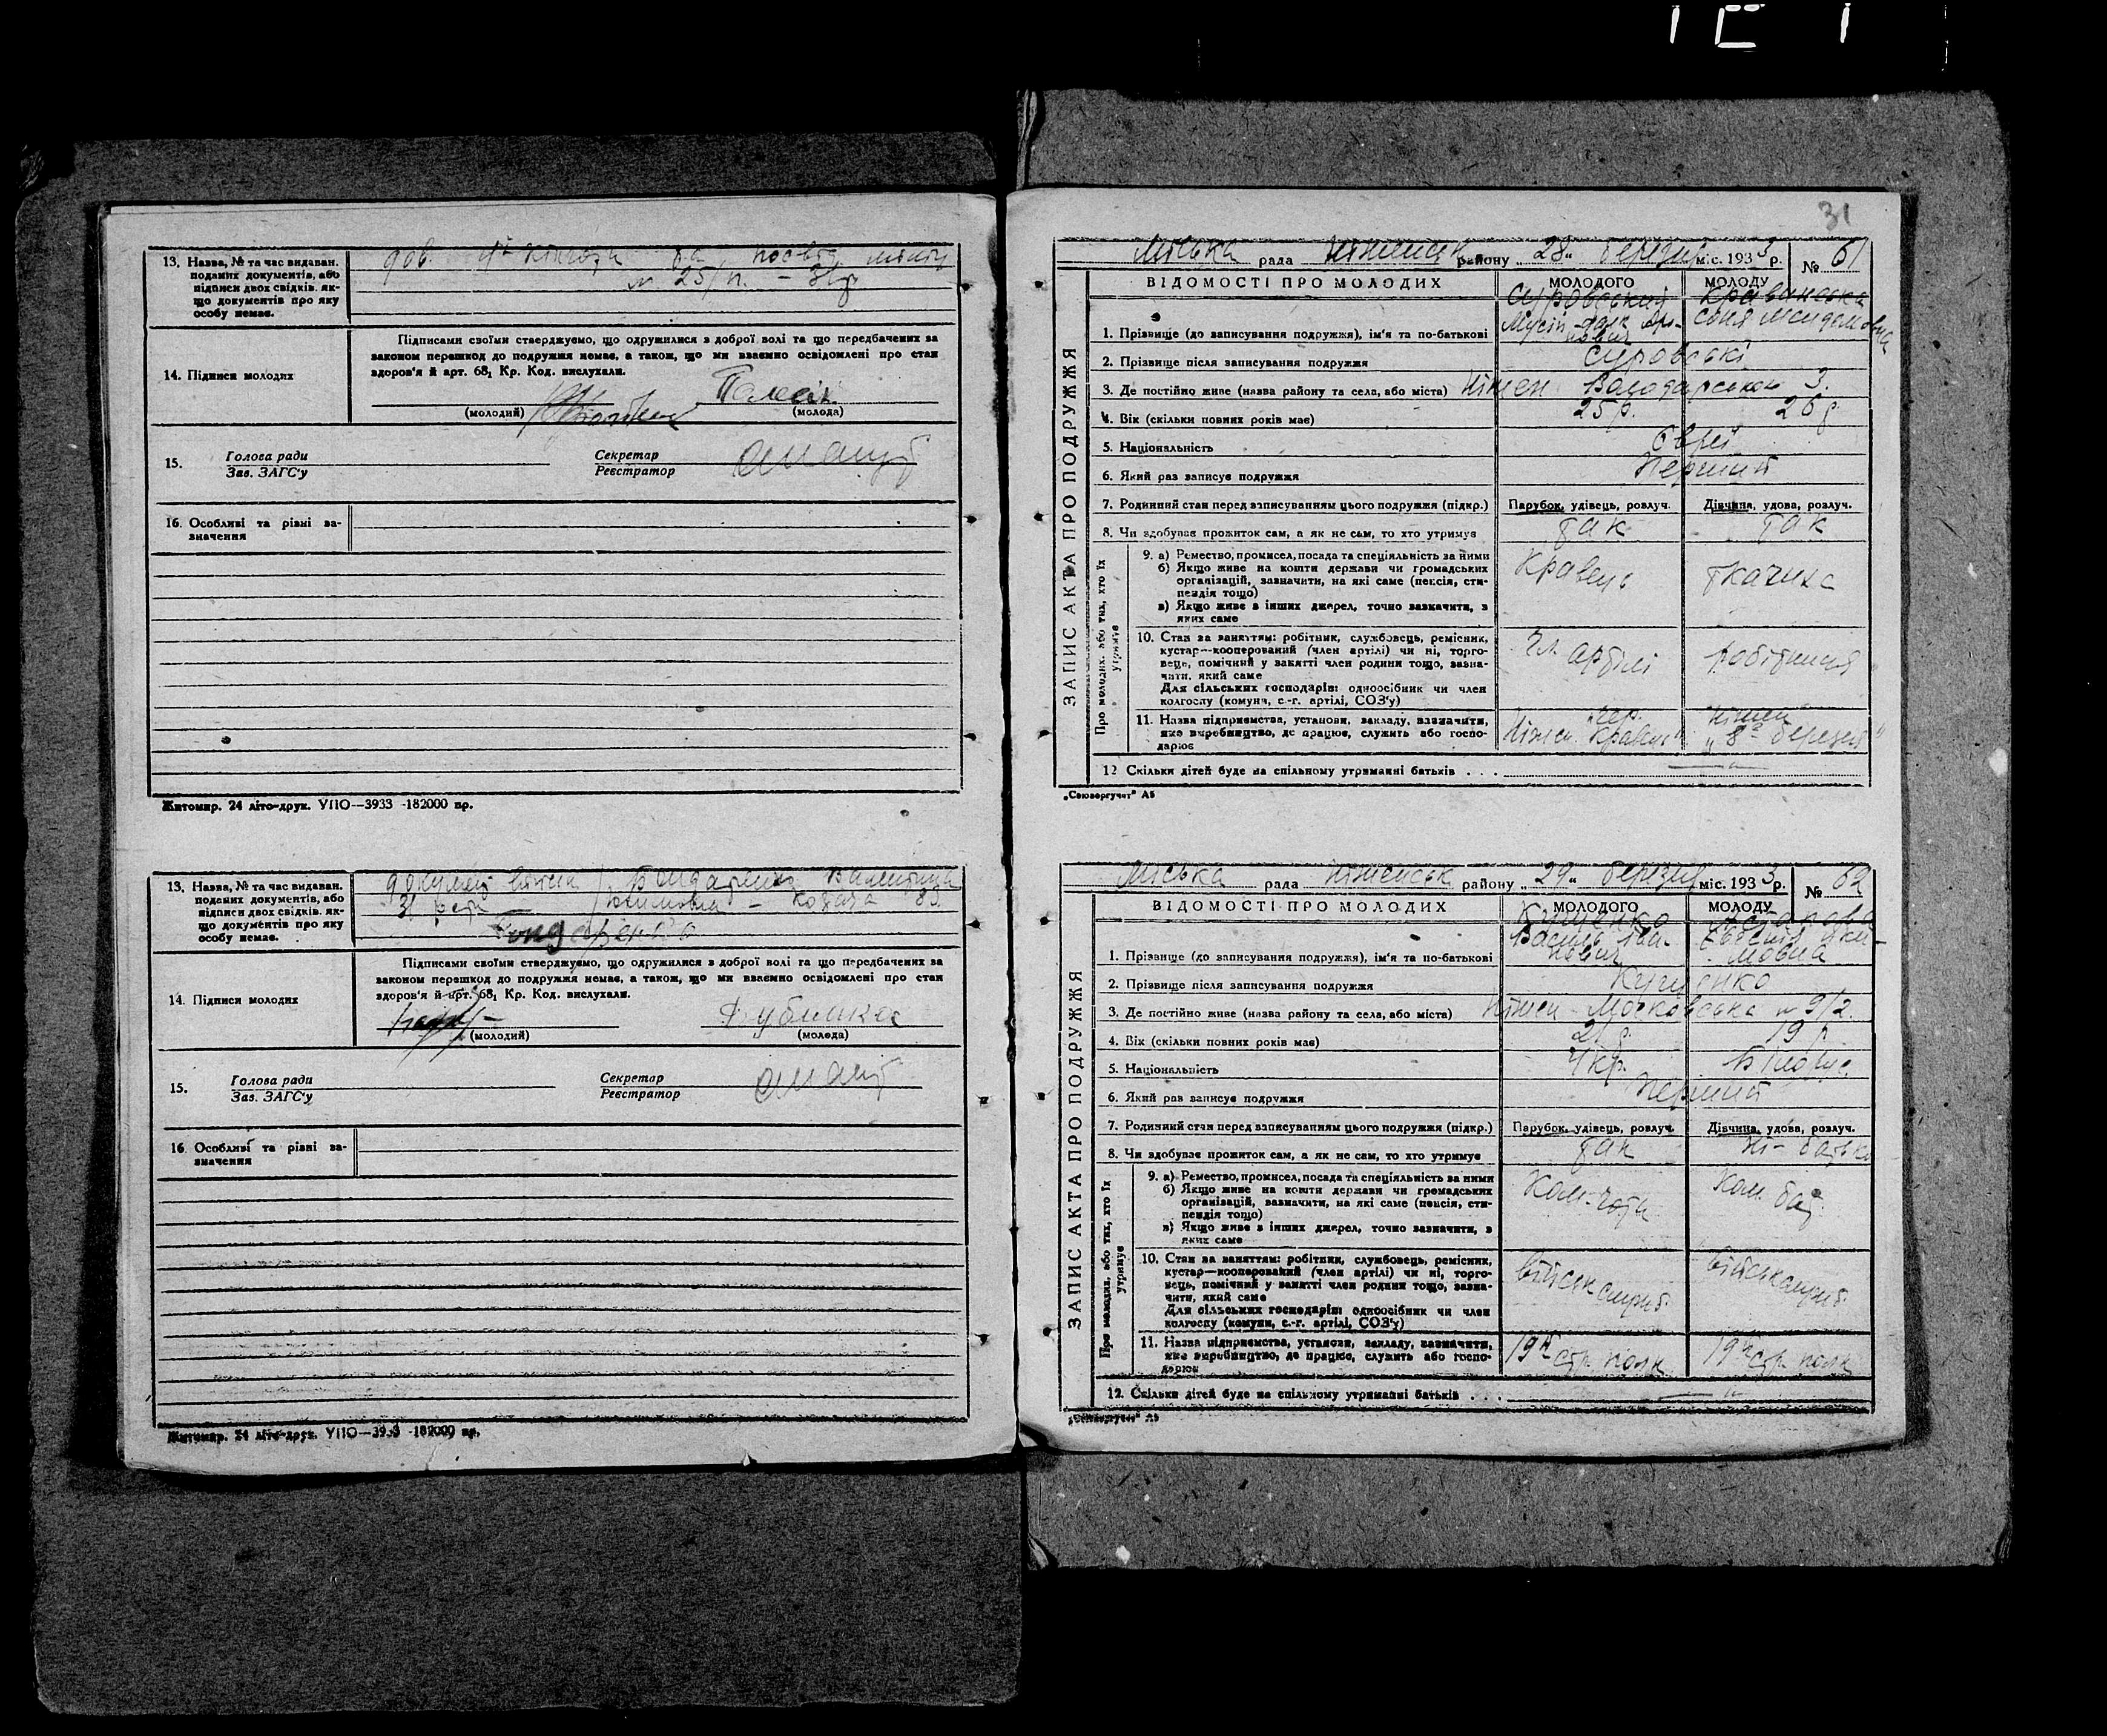 13. Назва, № та час видаван.
поданих документів, або
підписи двох свідків. як-
що документів про яку
особу немає.
дов. та посвід. міліц
№ 25/п. – 31р
14. Підписи молодих
Підписами своїми стверджуємо, що одружилися з доброї волі та що передбачених за
законом перешкод до подружжя немає, а також, що ми взаємно освідомлені про стан
здоров'я й арт. 68₁ Кр. Код. вислухали.
(молодий) (молода)
15. Голова ради
Зав. ЗАГС'у
Секретар
Реєстратор
16. Особливі та різні за-
значення
Житомир. 24 літо-друк. УПО—3933 -182000 пр.
13. Назва, № та час видаван.
поданих документів, або
підписи двох свідків. як-
що документів про яку
особу немає.
Бондаренко
14. Підписи молодих
Підписами своїми стверджуємо, що одружилися з доброї волі та що передбачених за
законом перешкод до подружжя немає, а також, що ми взаємно освідомлені про стан
здоров'я й арт. 68₁ Кр. Код. вислухали.
(молодий) (молода)
15. Голова ради
Зав. ЗАГС'у
Секретар
Реєстратор
16 Особливі та різні за-
значення
Житомир. 24 літо-друк. УПО—3933 -182000 пр.
31
Міська рада Ніженськ району „28" березня міс. 1933 р. № 61
ЗАПИС АКТА ПРО ПОДРУЖЖЯ
ВІДОМОСТІ ПРО МОЛОДИХ
МОЛОДОГО
МОЛОДУ
1. Прізвище (до записування подружжя), ім'я та по-батькові
Суровський
Соня
2. Прізвище після записування подружжя
Суровські
3. Де постійно живе (назва району та села, або міста) Ніжен Володарськог 3.
4. Вік (скільки повних років має) 25 р. 26 р
5. Національність Євреї
6. Який раз записує подружжя Перший
7. Родинний стан перед записуванням цього подружжя (підкр.) Парубок, удівець, розлуч. Дівчина, удова, розлуч.
8. Чи здобуває прожиток сам, а як не сам, то хто утримує так так
Про молодих. або тих, хто їх утримує
9. а) Ремество, промисел, посада та спеціяльність за ними
б) Якщо живе на кошти держави чи громадських
організацій, зазначити, на які саме (пенсія, сти-
пендія тощо)
в) Якщо живе з інших джерел, точно зазначити, з
яких саме
Кравець ткачиха
10. Стан за заняттям: робітник, службовець, ремісник,
кустар—кооперований (член артілі) чи ні, торго-
вець, помічний у занятті член родини тощо, зазна-
чити, який саме
Для сільських господарів: одноосібник чи член
колгоспу (комуни, с.-г. артілі, СОЗ'у)
чл артілі робітниця
11. Назва підприємства, установи, закладу, зазначити,
яке виробництво, де працює, служить або госпо-
дарює
Ніжен. Кравець"
Ніжен „8ᵉ березня"
12 Скільки дітей буде на спільному утриманні батьків . . .
„Союзоргучет" А5
Міська рада Ніженськ району „29" березня міс. 1933 р. № 62
ЗАПИС АКТА ПРО ПОДРУЖЖЯ
ВІДОМОСТІ ПРО МОЛОДИХ
МОЛОДОГО
МОЛОДУ
1. Прізвище (до записування подружжя), ім'я та по-батькові
Кущенко
Василь Іва-
нович
2. Прізвище після записування подружжя Кущенко
3. Де постійно живе (назва району та села, або міста) Ніжен Московська № 9/2.
4. Вік (скільки повних років має) 21 р. 19 р
5. Національність Укр. Білорус.
6. Який раз записує подружжя Перший
7. Родинний стан перед записуванням цього подружжя (підкр.) Парубок, удівець, розлуч. Дівчина, удова, розлуч.
8. Чи здобуває прожиток сам, а як не сам, то хто утримує так ні- батько
Про молодих, або тих, хто їх утримує
9. а) Ремество, промисел, посада та спеціяльність за ними
б) Якщо живе на кошти держави чи громадських
організацій, зазначити, на які саме (пенсія, сти-
пендія тощо)
в) Якщо живе з інших джерел, точно зазначити, з
яких саме
Ком. чоти Ком. бат.
10. Стан за заняттям: робітник, службовець, ремісник,
кустар—кооперований (член артілі) чи ні, торго-
вець, помічний у занятті член родини тощо, зазна-
чити, який саме
Для сільських господарів: одноосібник чи член
колгоспу (комуни, с.-г. артілі, СОЗ'у)
11. Назва підприємства, установи, закладу, зазначити,
яке виробництво, де працює, служить або госпо-
дарює
19й стр. полк 19й стр. полк
12. Скільки дітей буде на спільному утриманні батьків . . .
„Союзоргучет" А5